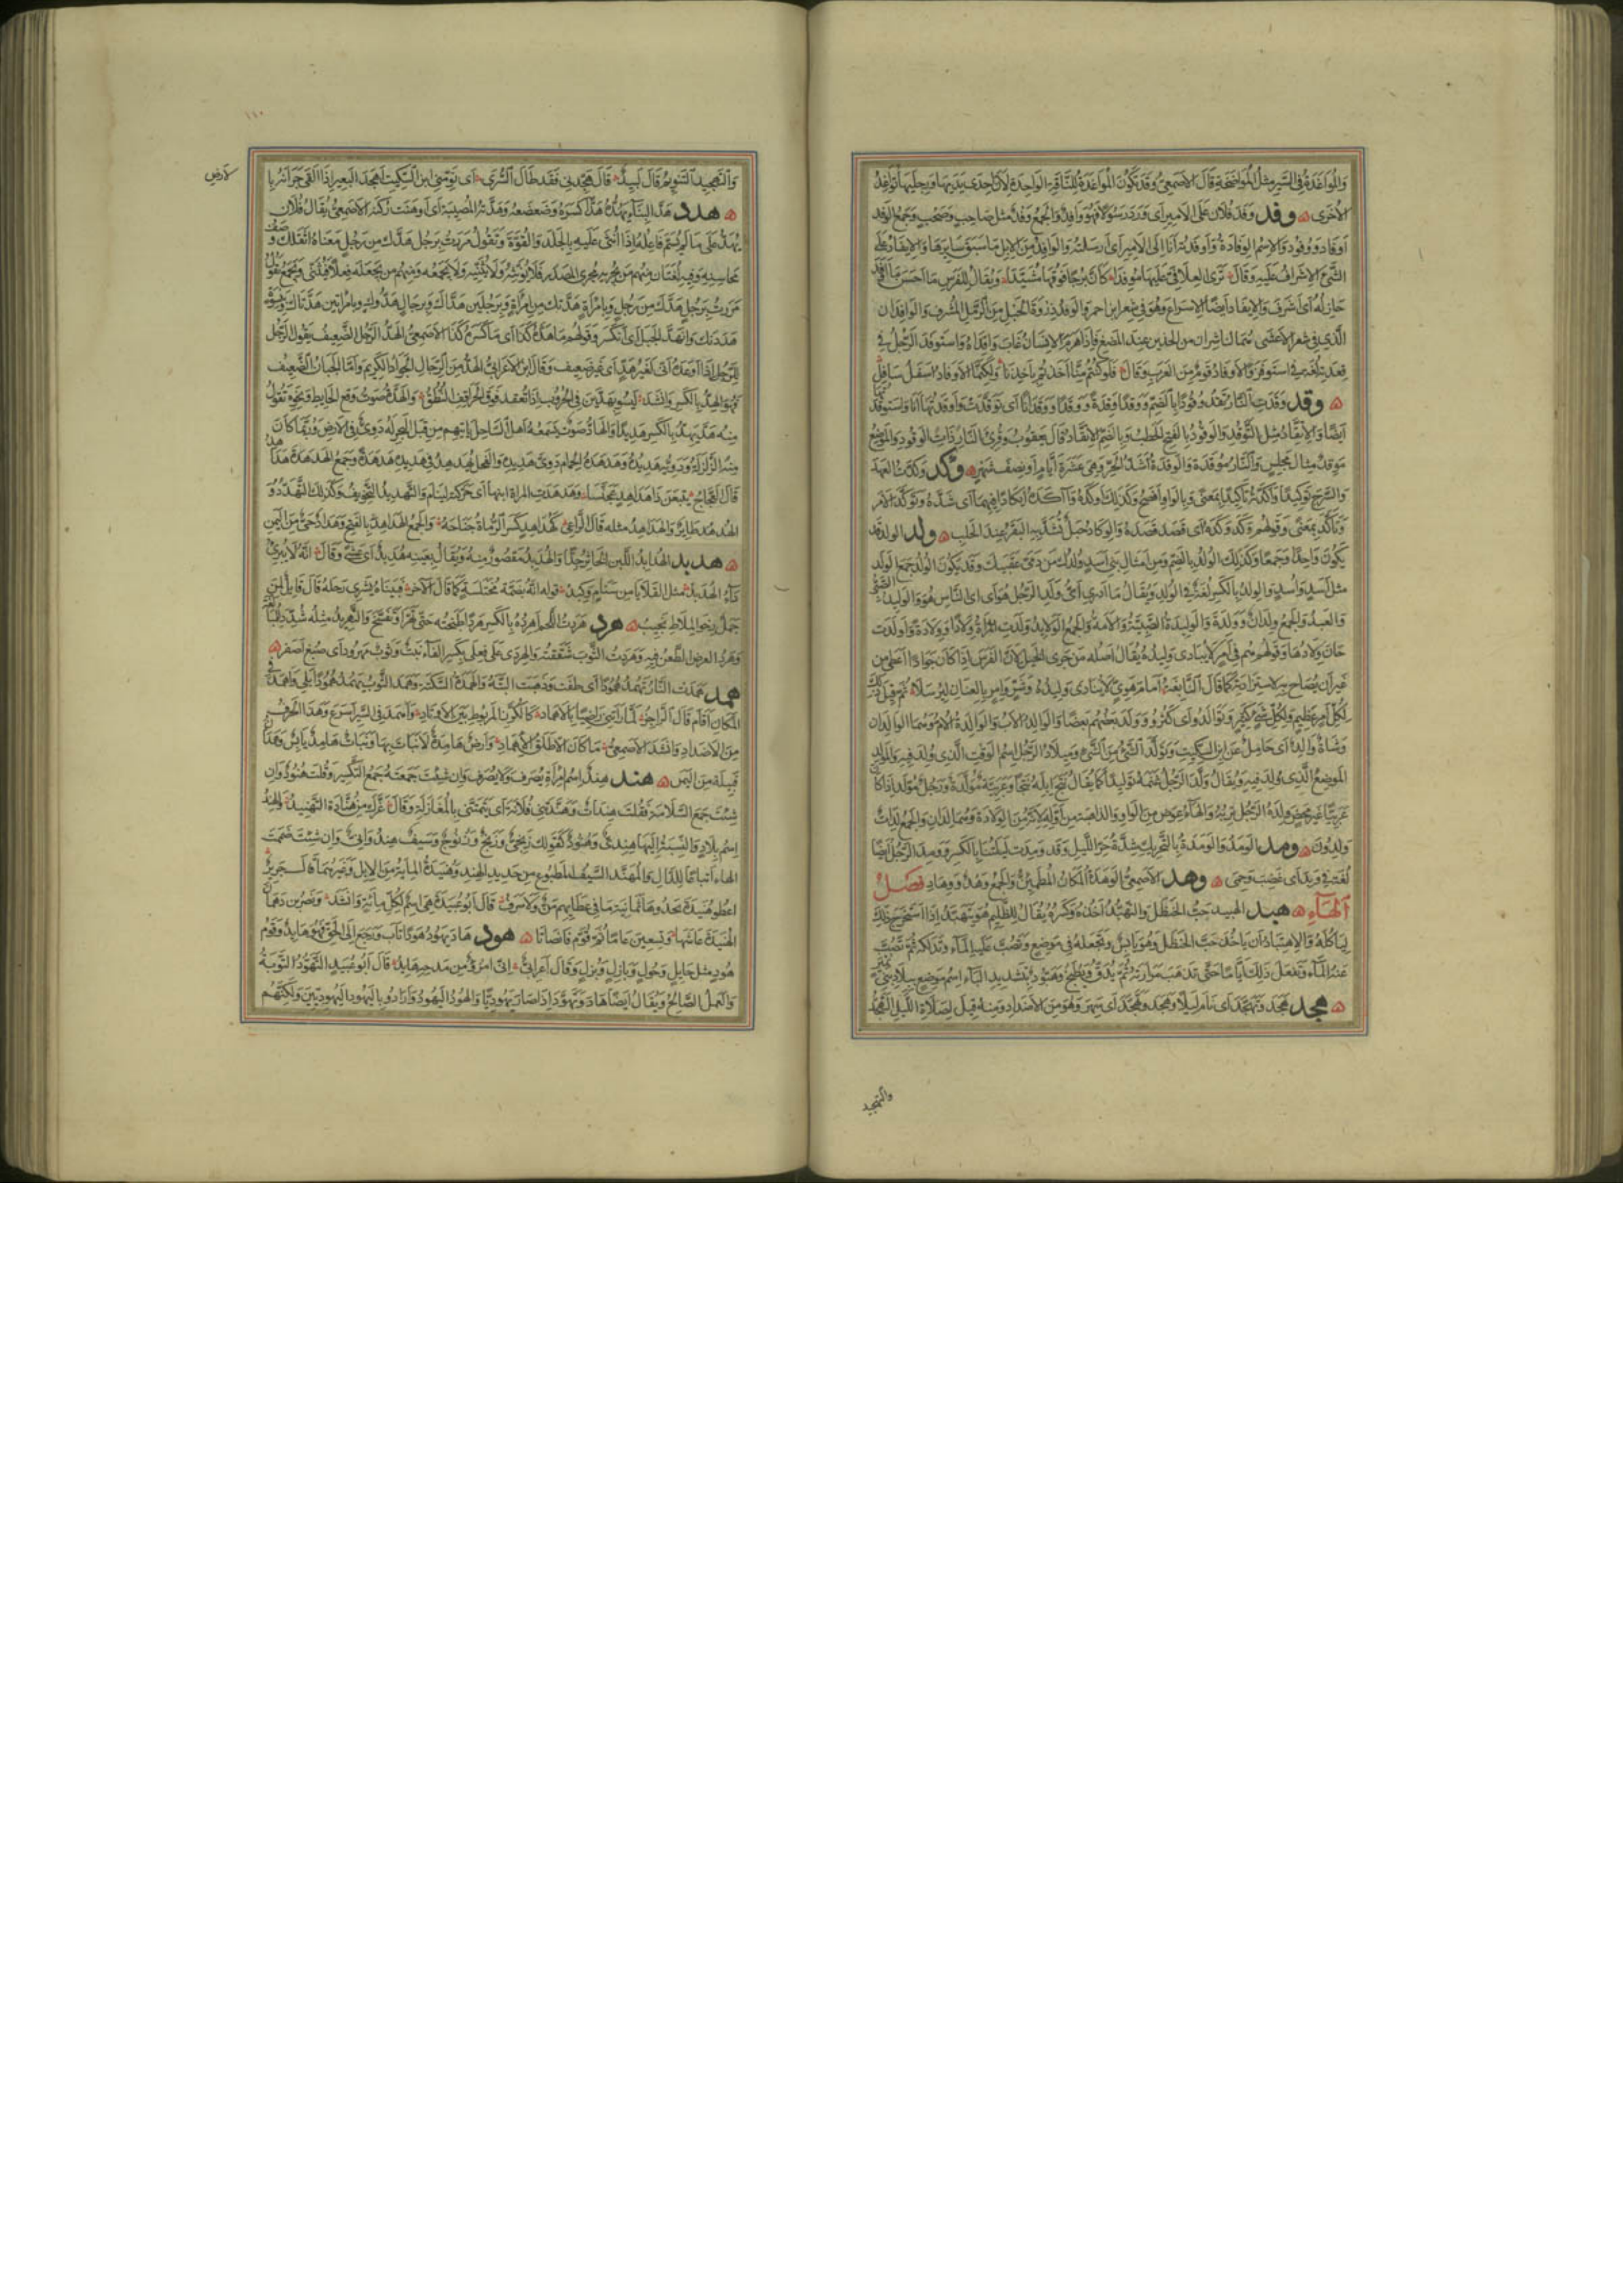 والمواغدة في السير مثل المواضخة قال الاصمعي وقد تكون المواغدة للناقة الواحدة لان احدى يديها ورجليها تواغد
الاخرى وفد وفد فلان على الامير اى ورد رسولا فهو وافد والجمع وفد مثل صاحب وصحب وجمع الوفد
اوفاد ووفود والاسم الوفادة واوفدته انا الى الامير اى ارسلته والوافد من الابل ما سبق سايرها والايفاد على
الشئ الاشراف عليه وقال ترى العلافى عليها موفدا كان برجا فوقها مشيدا ويقال للفرس ما احسن ما اوفد
حاركه اى اشرف والايفاد ايضا الاسراع وهو فى شعر ابن احمر والوفد ذروة الحبل من الرمل المشرف والوافدان
الذى فى شعر الاعشى هما الناشزان من الخدين عند المضغ فاذا هرم الانسان غاب وافداه واستوفد الرجل فى
قعدته لغة فى استوفز والاوفاد قوم من العرب وقال فلو كنتم منا اخذنا باخذنا ولكنما الاوفاد اسفل سافل
وقد وقدت النار تقد وقودا بالضم ووقدا وقدة ووقدا ووقدانا اى توقدت واوقدتها انا واستوقدتها
ايضا والاتقاد مثل التوقد والوقود بالفتح الحطب وبالضم الاتقاد قال يعقوب وقرئ النار ذات الوقود والموضع
موقد مثال مجلس والنار موقدة والوقدة اشد الحر وهى عشرة ايام او نصف شهر وكد وكدت العهد
والسرج توكيدا واكدته تاكيدا بمعنى وبالواو افصح وكذلك اوكده واكده ايكادا فيهما اى شده وتوكد الامر
وتاكد بمعنى وقولهم وكد وكده اى قصد قصده والوكاد حبل تشد به البقر عند الحلب ولد الولد قد
يكون واحدا وجمعا وكذلك الولد بالضم ومن امثال بنى اسد ولدك من دمى عقبيك وقد يكون الولد جمع الولد
مثل اسد واسد والولد بالكسر لغة فى الولد ويقال ما ادرى اى ولد الرجل هو اى اى الناس هو والوليد الصبى
والعبد والجمع ولدان وولدة والوليدة الصبية والامة والجمع الولايد وولدت المراة ولادا وولادة واولدت
حان ولادها وقولهم هم فى امر لا ينادى وليده يقال اصله من جرى الخيل لان الفرس اذا كان جوادا اعطى من
غير ان يصاح به لاستزادته كما قال النابغة
لكل امر عظيم ولكل شئ كثير وتوالدوا اى كثروا وولد بعضهم بعضا والوالد الاب والوالدة الام وهما الوالدان
وشاة والد اى حامل عن ابن السكيت وتولد الشئ من الشئ وميلاد الرجل اسم الوقت الذى ولد فيه والمولد
الموضع الذى ولد فيه ويقال ولد الرجل غنمه توليدا كما يقال نتج ابله نتجا وعربية مولدة ورجل مولد اذا كان
عربيا غير محض ولدة الرجل تربه والهاء عوض من الواو الذاهبة من اوله لانه من الولادة وهما لدان والجمع لدات
ولدون ومد الومد والومدة بالتحريك شدة حر الليل وقد ومدت ليلتنا بالكسر وومد الرجل ايضا
لغة فى وبد اى غضب وحمى وهد الاصمعى الوهدة المكان المطمئن والجمع وهد ووهاد فصل
الهاء هبد الهبيد حب الحنظل والتهبد اخذه وكسره يقال للظليم هو يتهبد اذا استخرج ذلك
لياكله والاهتباد ان ياخذ حب الحنظل وهو يابس وتجعله فى موضع وتصب عليه الماء وتدلكه ثم تصب
عنه الماء وتفعل ذلك اياما حتى تذهب مرارته ثم يدق ويطبخ وهبود بتشديد الباء اسم موضع ببلاد بنى نمير
هجد هجد وتهجد اى نام ليلا وهجد وتهجد اى سهر وهو من الاضداد ومنه قيل لصلاة الليل التهجد
والتهجيد
والتهجيد التنويم قال لبيد قال هجدنى فقد طال السرى اى نومنى ابن السكيت اهجد البعير اذا القى جرانه با
لارض
هدد هد البناء يهده هدا كسره وضعضعه وهدته المصيبة اى اوهنت ركنه الاصمعى يقال فلان
يهد على ما لم يسم فاعله اذا اثنى عليه بالجلد والقوة وتقول مررت برجل هدك من رجل معناه اثقلك وصف
محاسنه وفيه لغتان منهم من يجريه مجرى المصدر فلا يؤنثه ولا يثنيه ولا يجمعه ومنهم من يجعله فعلا فيثنى ويجمع تقول
مررت برجل هدك من رجل وبامراة هدتك من امراة وبرجلين هداك وبرجال هدوك وبامراتين هدتاك وبنسوة
هددنك وانهد الجبل اى انكسر وقولهم ما هده كذا اى ما كسره كذا الاصمعى الهد الرجل الضعيف يقول الرجل
للرجل اذا اوعده انى لغير هد اى غير ضعيف وقال ابن الاعرابى الهد من الرجال الجواد الكريم واما الجبان الضعيف
فهو الهد بالكسر وانشد ليسوا بهدين فى الحروب اذا تعقد فوق الحراقف النطق والهدة صوت وقع الحايط ونحوه تقول
منه هد يهد بالكسر هديدا والهاد صوت يسمعه اهل الساحل ياتيهم من قبل البحر له دوى فى الارض وربما كانت
منه الزلزلة ودويه هديده وهدهدة الحمام دوى هديره والفحل يهدهد فى هديره هدهدة وجمع الهدهدة هداهد
قال العجاج يتبعن ذا هداهد عجنسا وهدهدت المراة ابنها اى حركته لينام والتهديد التخويف وكذلك التهدد و
الهدهد طاير والهداهد مثله قال الراعى كهداهد كسر الرماة جناحه والجمع الهداهد بالفتح وهداد حى من اليمن
هدبد الهدابد اللبن الخاثر جدا والهدبد مقصور منه ويقال بعينه هدبد اى عمش وقال انه لا يبرئ
داء الهدبد مثل القلايا من سنام وكبد قوله انه بضمة مختلسة كما قال الاخر فبيناه يشرى رحله قال قايل لمن
جمل رخو الملاط نجيب هرد هردت اللحم اهرده بالكسر هردا طبخته حتى تهرا وتفسخ والتهريد مثله شدد للمبالغة
وهرد العرض الطعن فيه وهردت الثوب شققته والهردى على فعلى بكسر الفاء نبت وثوب مهرود اى صبغ اصفر
همد همدت النار تهمد همودا اى طفئت وذهبت البتة والهمدة السكتة وهمد الثوب يهمد همودا بلى واهمد فى
المكان اقام قال الراجز لما راتنى راضيا بالاهماد كالكرز المربوط بين الاوتاد واهمد فى السير اسرع وهذا الحرف
من الاضداد وانشد الاصمعى ما كان الا طلق الاهماد وارض هامدة لا نبات بها ونبات هامد يابس وهمدان
قبيلة من اليمن هند هند اسم امراة يصرف ولا يصرف وان شئت جمعته جمع التكسير وقلت هنود وان
شئت جمع السلامة فقلت هندات وهندتنى فلانة اى تيمتنى بالمغازلة وقال غرك من هنادة التهنيد والهند
اسم بلاد والنسبة اليها هندى وهنود كقولك زنجى وزنج وزنوج وسيف هندوانى وان شئت ضممت
الهاء اتباعا للدال والمهند السيف المطبوع من حديد الهند وهنيدة الماية من الابل وغيرها قال جرير
اعطوا هنيدة يحدوها ثمانية ما فى عطايهم من ولا سرف قال ابو عبيدة هى اسم لكل ماية وانشد ونصر بن دهمان
الهنيدة عاشها وتسعين عاما ثم قوم فانصاتا هود هاد يهود هودا تاب ورجع الى الحق فهو هايد وقوم
هود مثل حايل وحول وبازل وبزل وقال اعرابى انى امرؤ من مدحه هايد قال ابو عبيد التهود التوبة
والعمل الصالح ويقال ايضا هاد وتهود اذا صار يهوديا والهود اليهود وارادوا باليهود اليهوديين ولكنهم